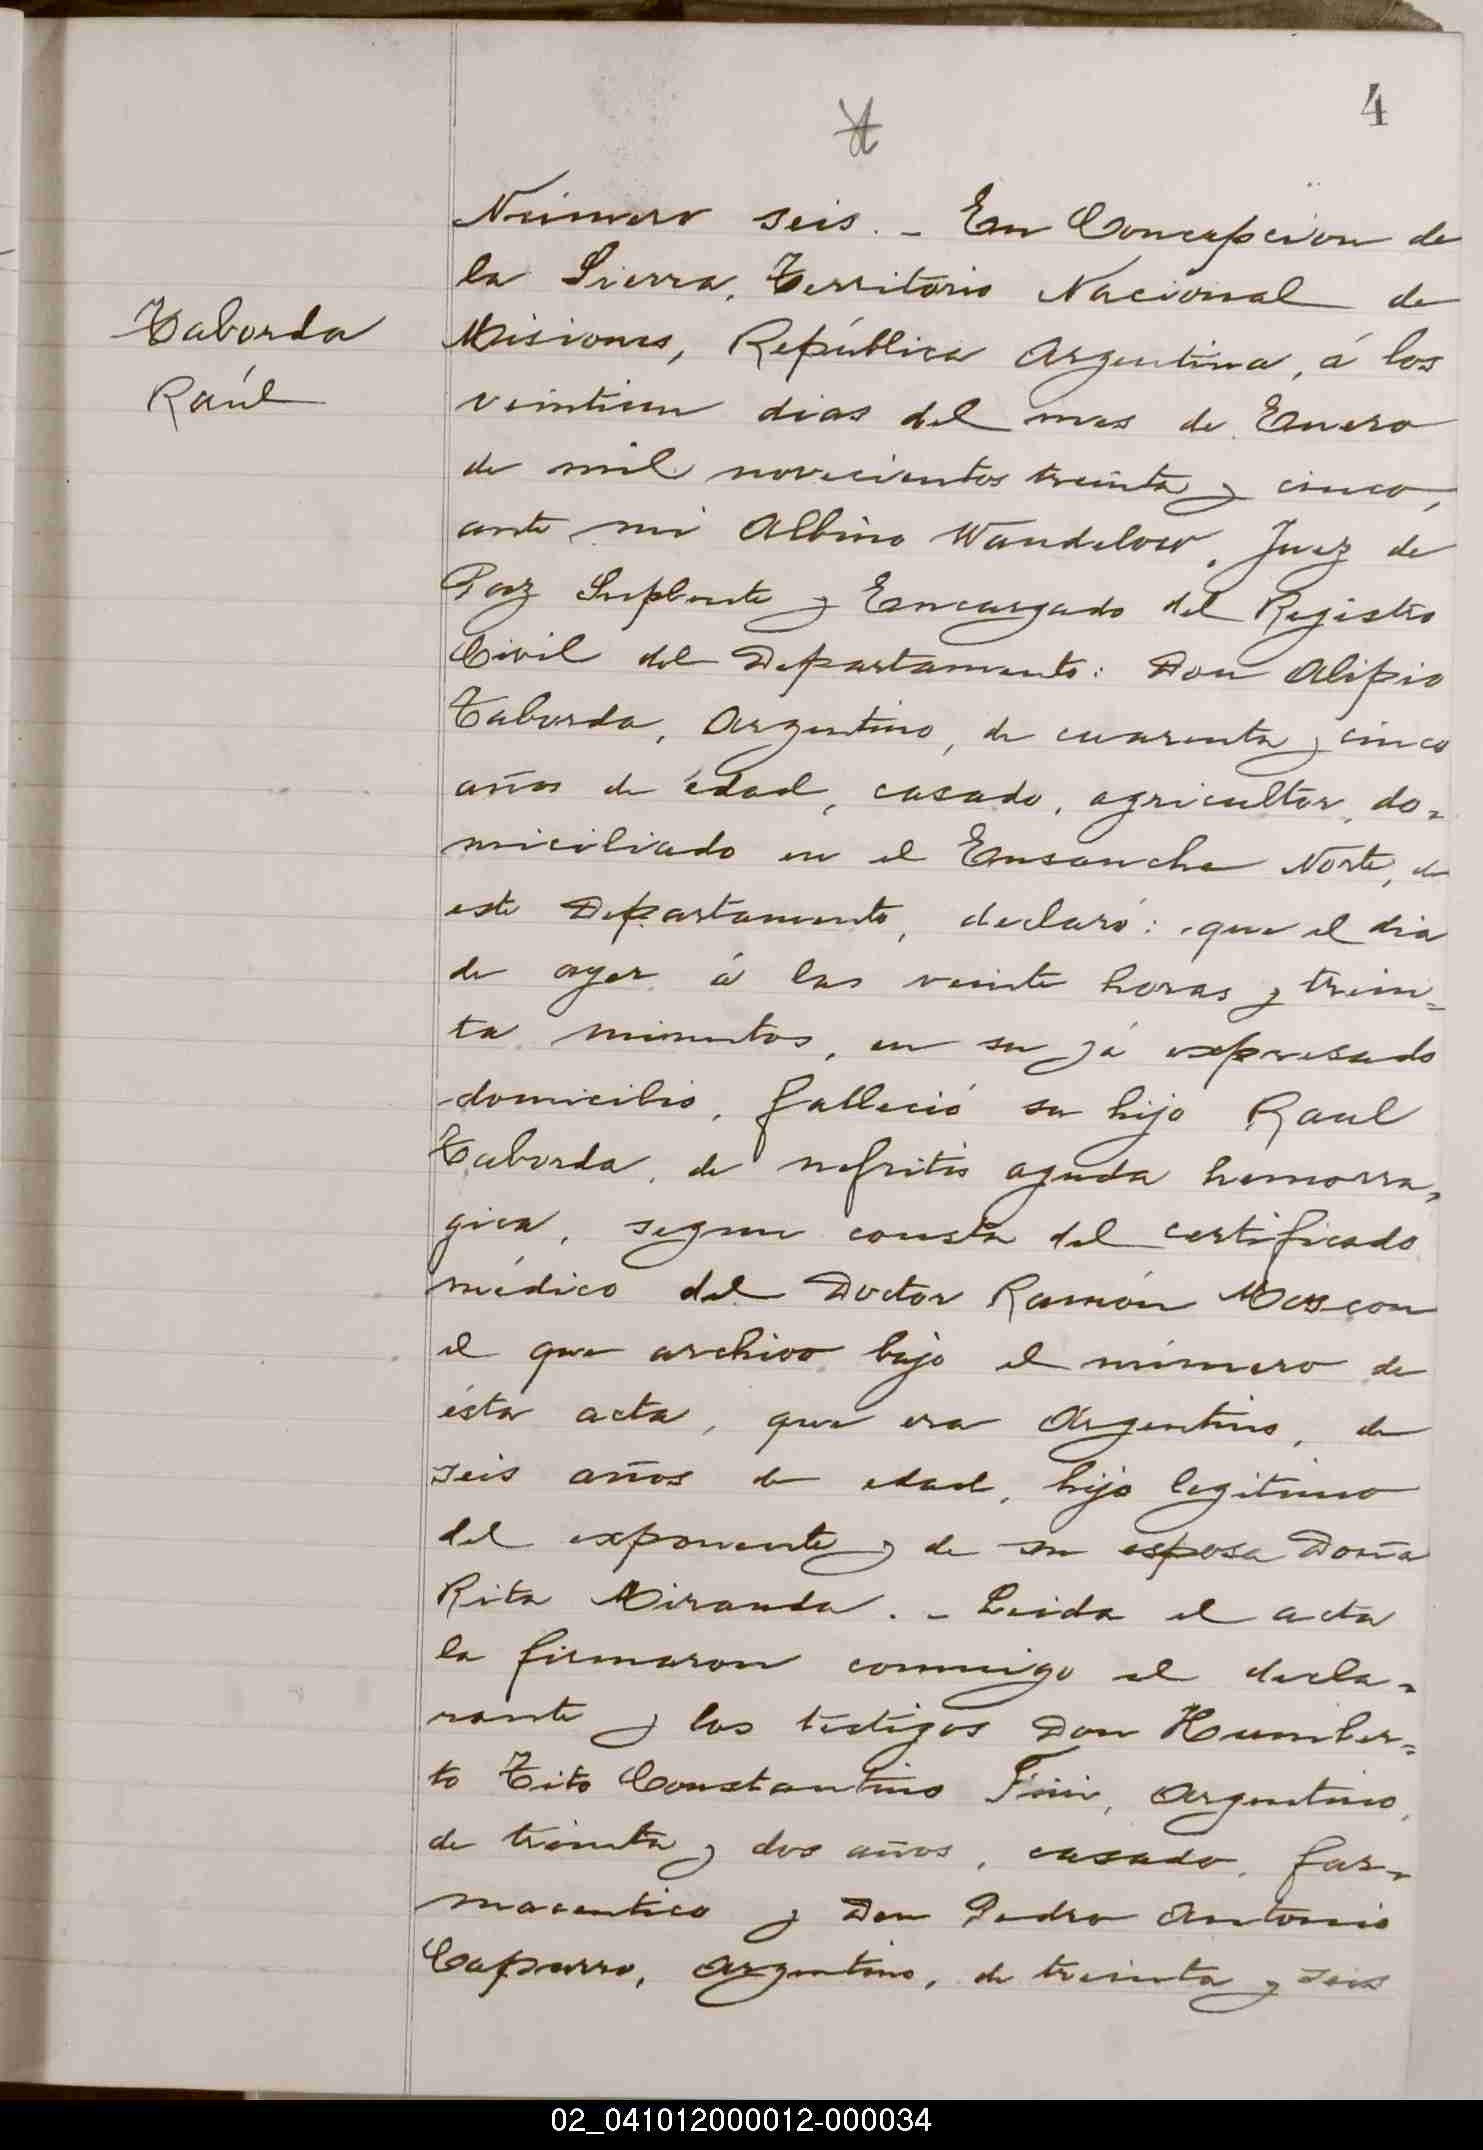 4
Número seis. - En Concepcion de
la Sierra, Territorio Nacional de
Misiones, República Argentina, á los
Taborda
Raúl
veintiun dias del mes de Enero
de mil novecientos treinta y cinco,
ante mi Albino Wandelow, Juez de
Paz Suplente y Encargado del Registro
Civil del Departamento: Don Alipio
Taborda, Argentino, de cuarenta y cinco
años de edad, casado, agricultor, do-
miciliado en el Ensanche Norte, de
este Departamento, declaró: que el dia
de ayer á las veinte horas y trein=
ta minutos, en su yá expresado
domicilio, falleció su hijo Raul
Taborda, de nefritis aguda hemorra-
gica, segun consta del certificado
médico del Doctor Ramón Moscon
el que archivo bajo el número de
ésta acta, que era Argentino, de
seis años de edad, hijo legitimo
del exponente y de su esposa Doña
Rita Miranda. - Leida el acta
la firmaron conmigo el decla-
rante y los testigos Don Humber=
to Tito Constantino Fini, Argentino,
de treinta y dos años, casado, far-
maceutico y Don Pedro Antonio
Caparro, Argentino, de treinta y seis
02_041012000012-000034